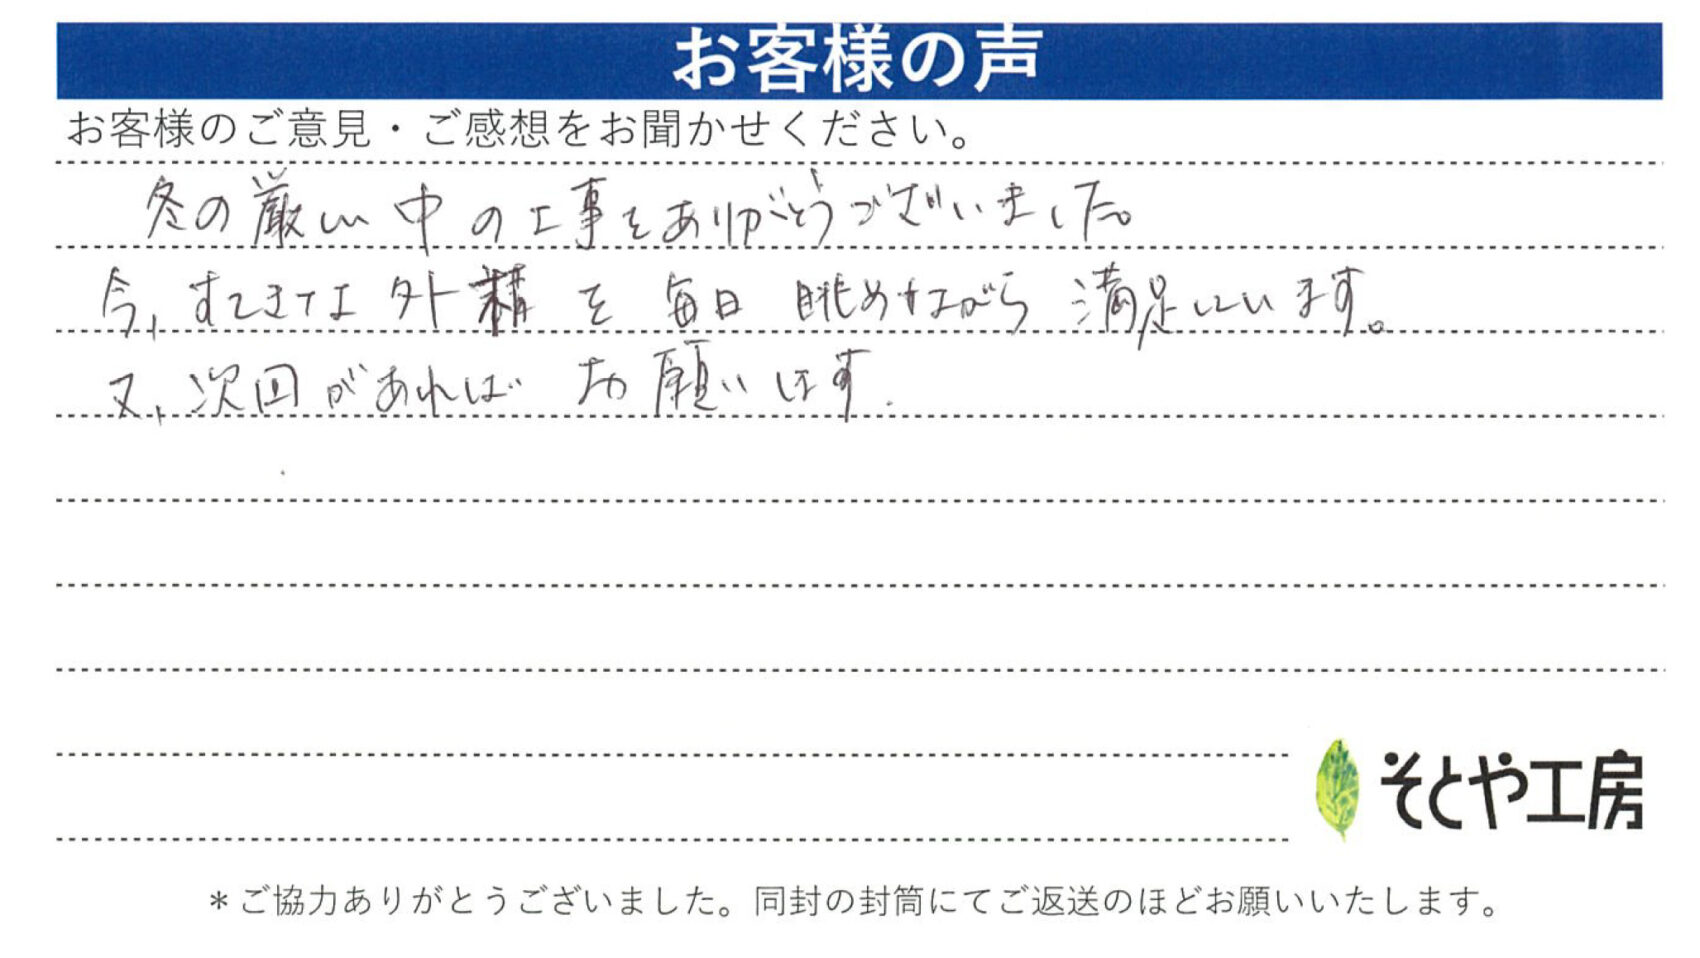 お客様の声
お客様のご意見・ご感想をお聞かせください。
冬の厳しい中の工事をありがとうございました。
今、すてきな外精を毎日眺めながら満足しています。
又、次回があればお願いします.
そとや工房
＊ご協力ありがとうございました。同封の封筒にてご返送のほどお願いいたします。